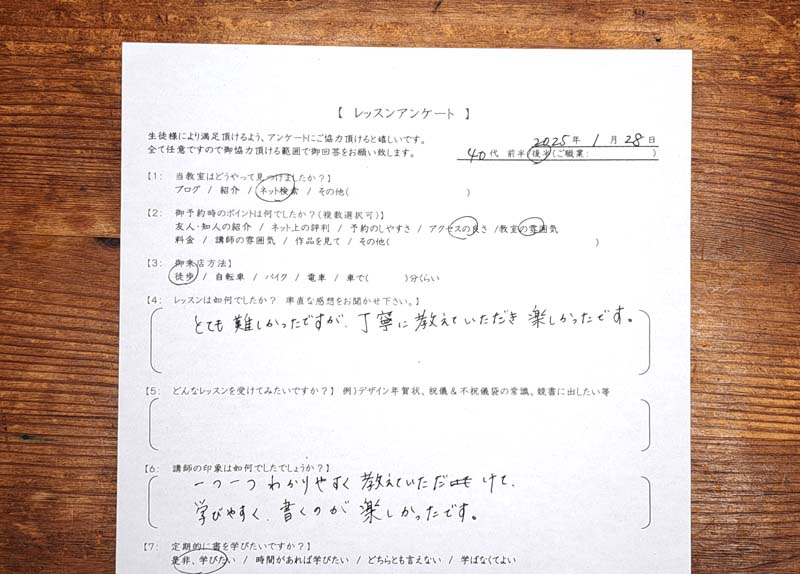 【 レッスンアンケート 】
生徒様により満足頂けるよう、アンケートにご協力頂けると嬉しいです。
2025年 1月 28日
全て任意ですので御協力頂ける範囲で御回答をお願い致します。
40代 前半 後半(ご職業: )
【1: 当教室はどうやって見つけましたか?】
ブログ / 紹介 / ネット検索 / その他( )
【2: 御予約時のポイントは何でしたか?(複数選択可)】
友人・知人の紹介 / ネット上の評判 / 予約のしやすさ / アクセスの良さ /教室の雰囲気
料金 / 講師の雰囲気 / 作品を見て / その他( )
【3: 御来店方法】
徒歩 / 自転車 / バイク / 電車 / 車で( )分くらい
【4: レッスンは如何でしたか? 率直な感想をお聞かせ下さい。】
とても難しかったですが、丁寧に教えていただき楽しかったです。
【5: どんなレッスンを受けてみたいですか?】 例)デザイン年賀状、祝儀&不祝儀袋の常識、競書に出したい等
【6: 講師の印象は如何でしたでしょうか?】
一つ一つわかりやすく教えていただけて、
学びやすく、書くのが楽しかったです。
【7: 定期的に書を学びたいですか?】
是非、学びたい / 時間があれば学びたい / どちらとも言えない / 学ばなくてよい